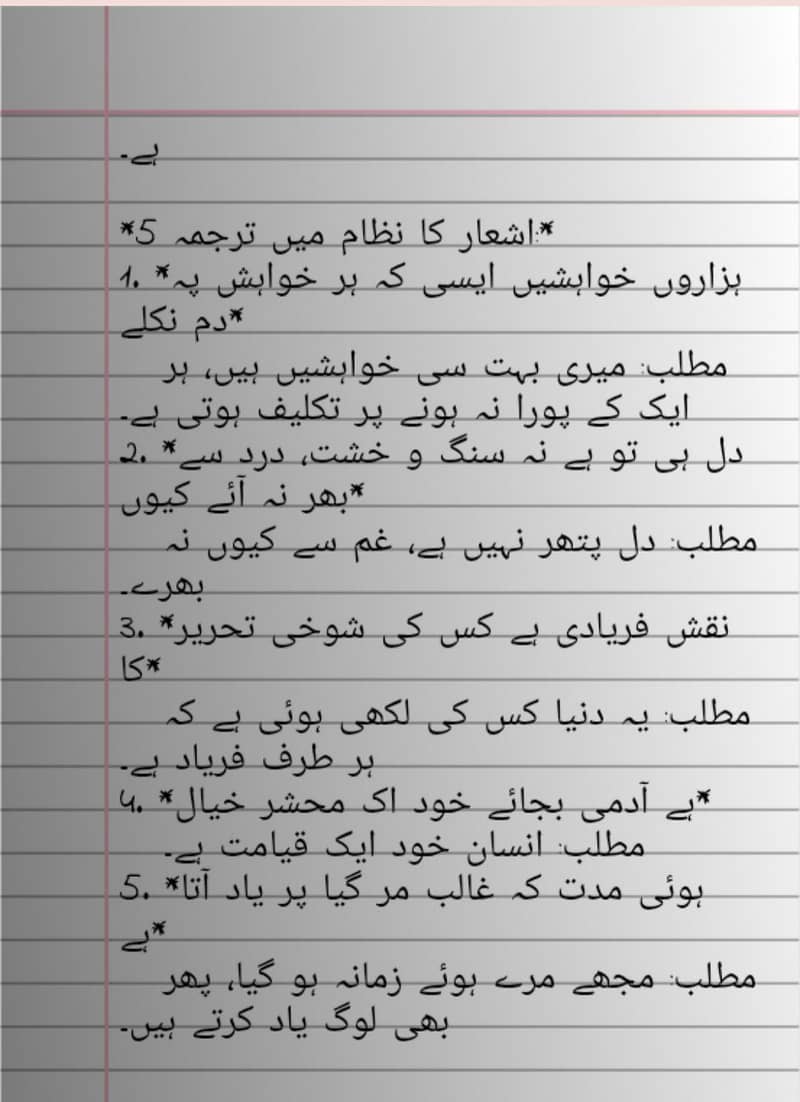 ہے۔
*5 اشعار کا نظام میں ترجمہ:*
1. *ہزاروں خواہشیں ایسی کہ ہر خواہش پہ
دم نکلے*
مطلب: میری بہت سی خواہشیں ہیں، ہر
ایک کے پورا نہ ہونے پر تکلیف ہوتی ہے۔
2. *دل ہی تو ہے نہ سنگ و خشت، درد سے
بھر نہ آئے کیوں*
مطلب: دل پتھر نہیں ہے، غم سے کیوں نہ
بھرے۔
3. *نقش فریادی ہے کس کی شوخی تحریر
کا*
مطلب: یہ دنیا کس کی لکھی ہوئی ہے کہ
ہر طرف فریاد ہے۔
4. *ہے آدمی بجائے خود اک محشر خیال*
مطلب: انسان خود ایک قیامت ہے۔
5. *ہوئی مدت کہ غالب مر گیا پر یاد آتا
ہے*
مطلب: مجھے مرے ہوئے زمانہ ہو گیا، پھر
بھی لوگ یاد کرتے ہیں۔